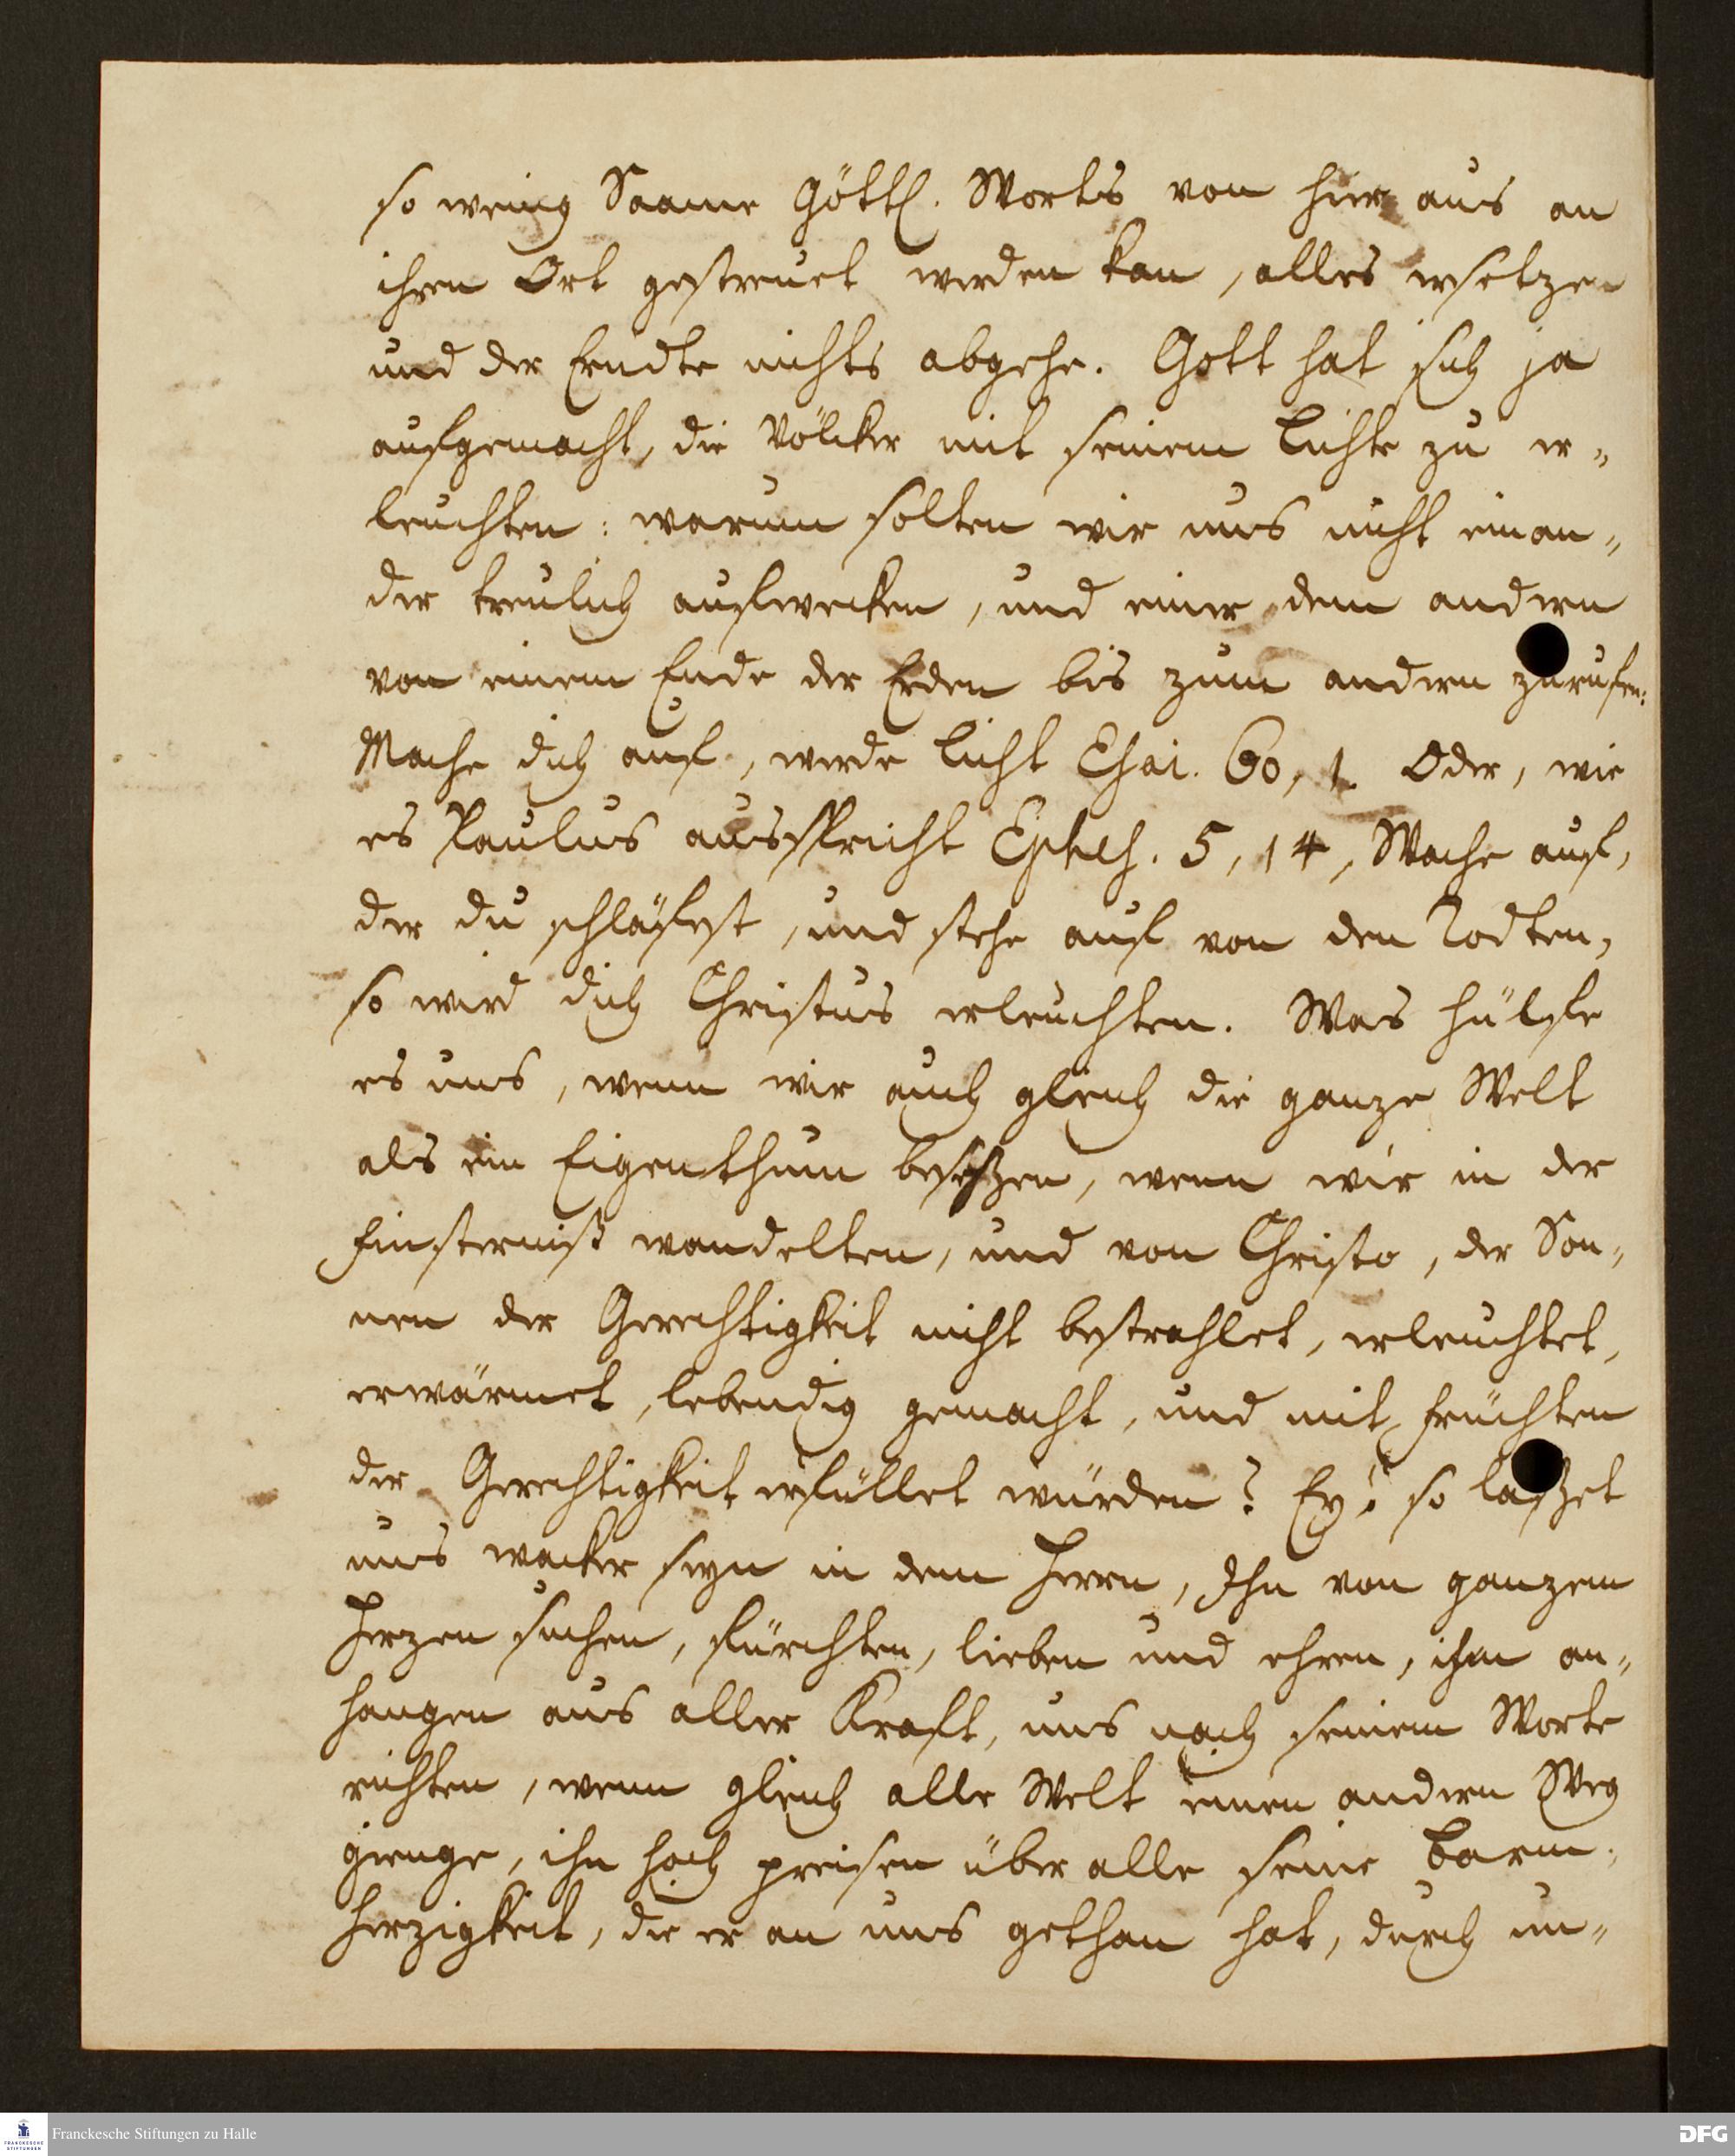 so wenig Saame Göttl. Worts von hier aus an
ihren Ort gestreuet werden kan, alles ersetzen
und der Erndte nichts abgehe. Gott hat sich ja
aufgemacht, die Völcker mit seinem Lichte zu er-
leuchten: warum solten wir uns nicht einan-
der treulich aufwecken, und einer dem andern
von einem Ende der Erden bis zum andern zurufen:
Mache dich auf, werde Licht Esai. 60, 1. Oder, wie
es Paulus ausspricht Ephes. 5, 14, Wache auf,
der du schläfest, und stehe auf von den Todten,
so wird dich Christus erleuchten. Was hülfe
es uns, wenn wir auch gleich die ganze Welt
als ein Eigenthum besäßen, wenn wir in der
Finsterniß wandelten, und von Christo, der Son-
nen der Gerechtigkeit nicht bestrahlet, erleuchtet,
erwärmet, lebendig gemacht, und mit Früchten
der Gerechtigkeit erfüllet würden? Ey! so laßet
uns wacker seyn in dem Herrn, Ihn von ganzem
Herzen suchen, fürchten, lieben und ehren, ihm an-
hangen aus aller Kraft, uns nach seinem Worte
richten, wenn gleich alle Welt einen andern Weg
gienge, ihn hoch preisen über alle seine Barm-
herzigkeit, die er an uns gethan hat, durch un-
Franckesche Stiftungen zu Halle
DFG